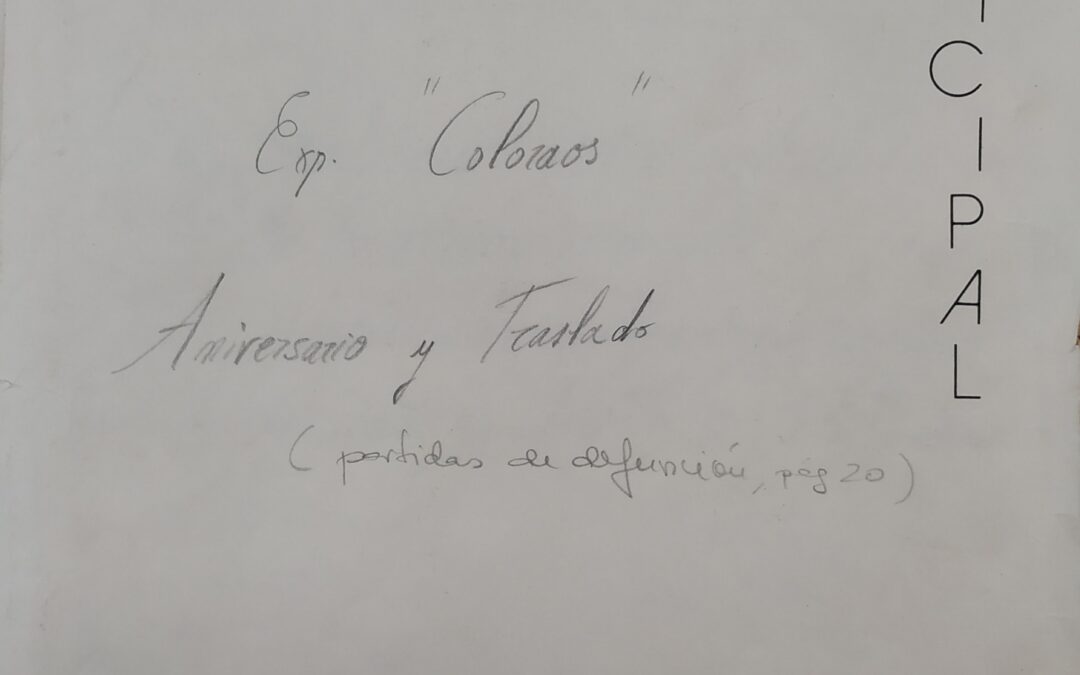 Exp. "Coloraos"
Aniversario y Traslado
(partidas de defunción, pág 20)
I
C
I
P
A
L